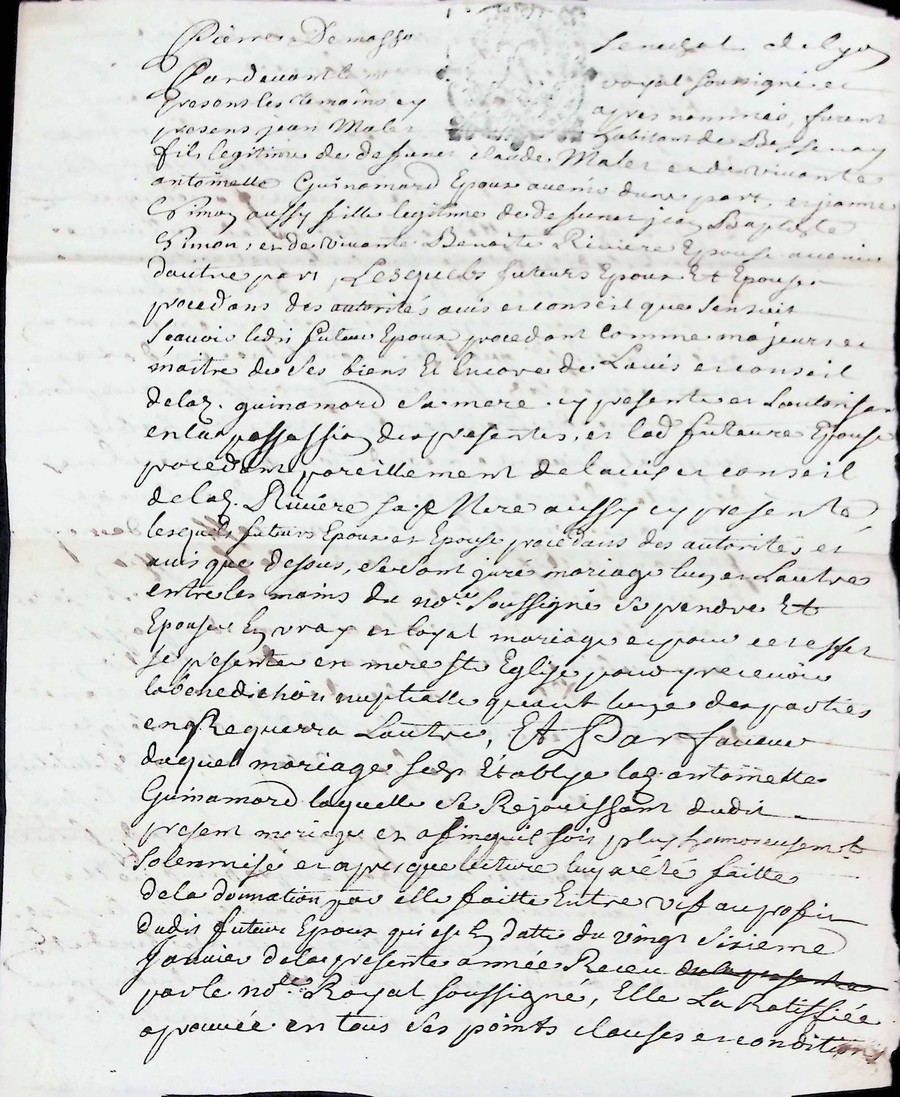 Pierre Demasso senechal de Lyon
Pardevant le royal soussigné et
presens les temoins cy apres nommés, furent
presens jean Malet habitant de Bessenay
fils legitime de deffunct claude Malet et de vivante
antoinette Guinamard Epoux avenir dune part, et jeanne
Simon aussy fille legitime de defunct jean Baptiste
Simon, et de vivante Benoite Riviere Epouse avenir
dautre part, Lesquels futurs Epoux Et Epouse
procedans des autorités avis et conseil que sensuit
Scavoir ledit futur Epoux procedant comme majeur et
maitre de ses biens Et Encore de Lavis et conseil
de lad. guinamard sa mere cy presente et Lautorisant
en la passation des presentes, et lad. future Epouse
procedant pareillement de lavis et conseil
de lad. Riviére sa Mere aussy cy presente
lesquels futurs Epoux et Epouse procedans des autorités et
avis que dessus, se sont juré mariage lun et Lautre
entre les mains du nore. soussigné se prendre Et
Epouser En vray et loyal mariage et pour cet effet
se presenter en mere ste Eglise pour y recevoir
la benediction nuptialle quant lune des parties
en Requerra Lautre, Et Par faveur
duquel mariage sest Etablye lad. antoinette
Guinamard laquelle se Rejouissant dudit
present mariage et afin quil soit plus honoreusemt.
Solemnisé et apres que lecture luy a été faitte
de la donnation par elle faitte Entre vif au profit
dudit futur Epoux qui est En datte du vingt sixieme
Janvier de la presente année Receu
par le nore. Royal soussigné, Elle La Ratiffiée
aprouvée en tous ses points clauses et conditions